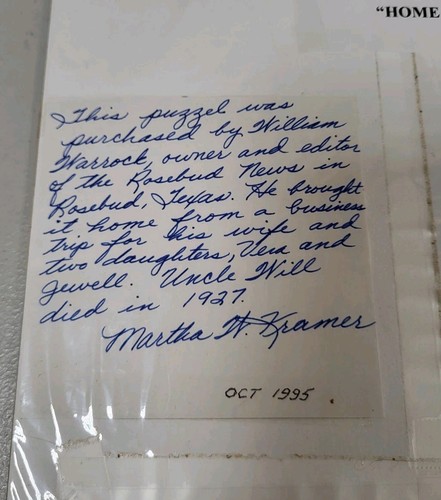 "HOME
This puzzel was
purchased by William
Warrock, owner and editor
of the Rosebud News in
Rosebud, Texas. He brought
it home from a business
trip for his wife and
two daughters, Vera and
Jewell. Uncle Will
died in 1927.
Martha W. Kramer
OCT 1995